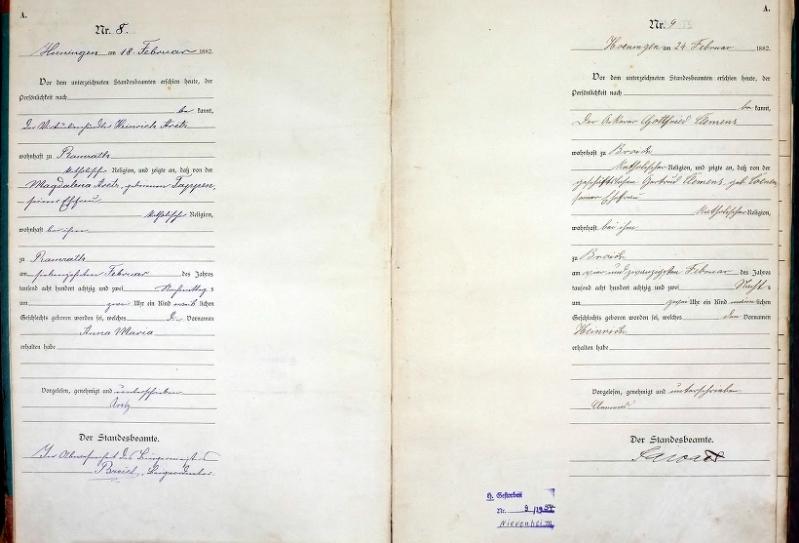 A.
Nr. 8.
Hoeningen am 18 Februar 1882.
Vor dem unterzeichneten Standesbeamten erschien heute, der
Persönlichkeit nach
be kannt,
Der Heinrich
wohnhaft zu Ramrath
katholischer Religion, und zeigte an, daß von der
Magdalena geborenen Tappen,
seiner Ehefrau
katholischer Religion,
wohnhaft bei ihm
zu Ramrath
am siebenzehnten Februar des Jahres
tausend acht hundert achtzig und zwei Nachmittag s
um Uhr ein Kind weib lichen
Geschlechts geboren worden sei, welches Vornamen
Anna Maria
erhalten habe
Vorgelesen, genehmigt und unterschrieben
Der Standesbeamte.
In Abwesenheit des Bürgermeisters
A.
Nr. 9
Hoeningen am 24 Februar 1882.
Vor dem unterzeichneten Standesbeamten erschien heute, der
Persönlichkeit nach
be kannt,
Der Ackerer Gottfried Clemens
wohnhaft zu Broich
katholischer Religion, und zeigte an, daß von der
geschäftslosen Gertrud Clemens, geb.
seiner Ehefrau
katholischer Religion,
wohnhaft bei ihm
zu Broich
am vier und zwanzigsten Februar des Jahres
tausend acht hundert achtzig und zwei Nacht s
um Uhr ein Kind männ lichen
Geschlechts geboren worden sei, welches den Vornamen
Heinrich
erhalten habe
Vorgelesen, genehmigt und unterschrieben
Clemens
Der Standesbeamte.
Nr. 9/19
Nievenheim